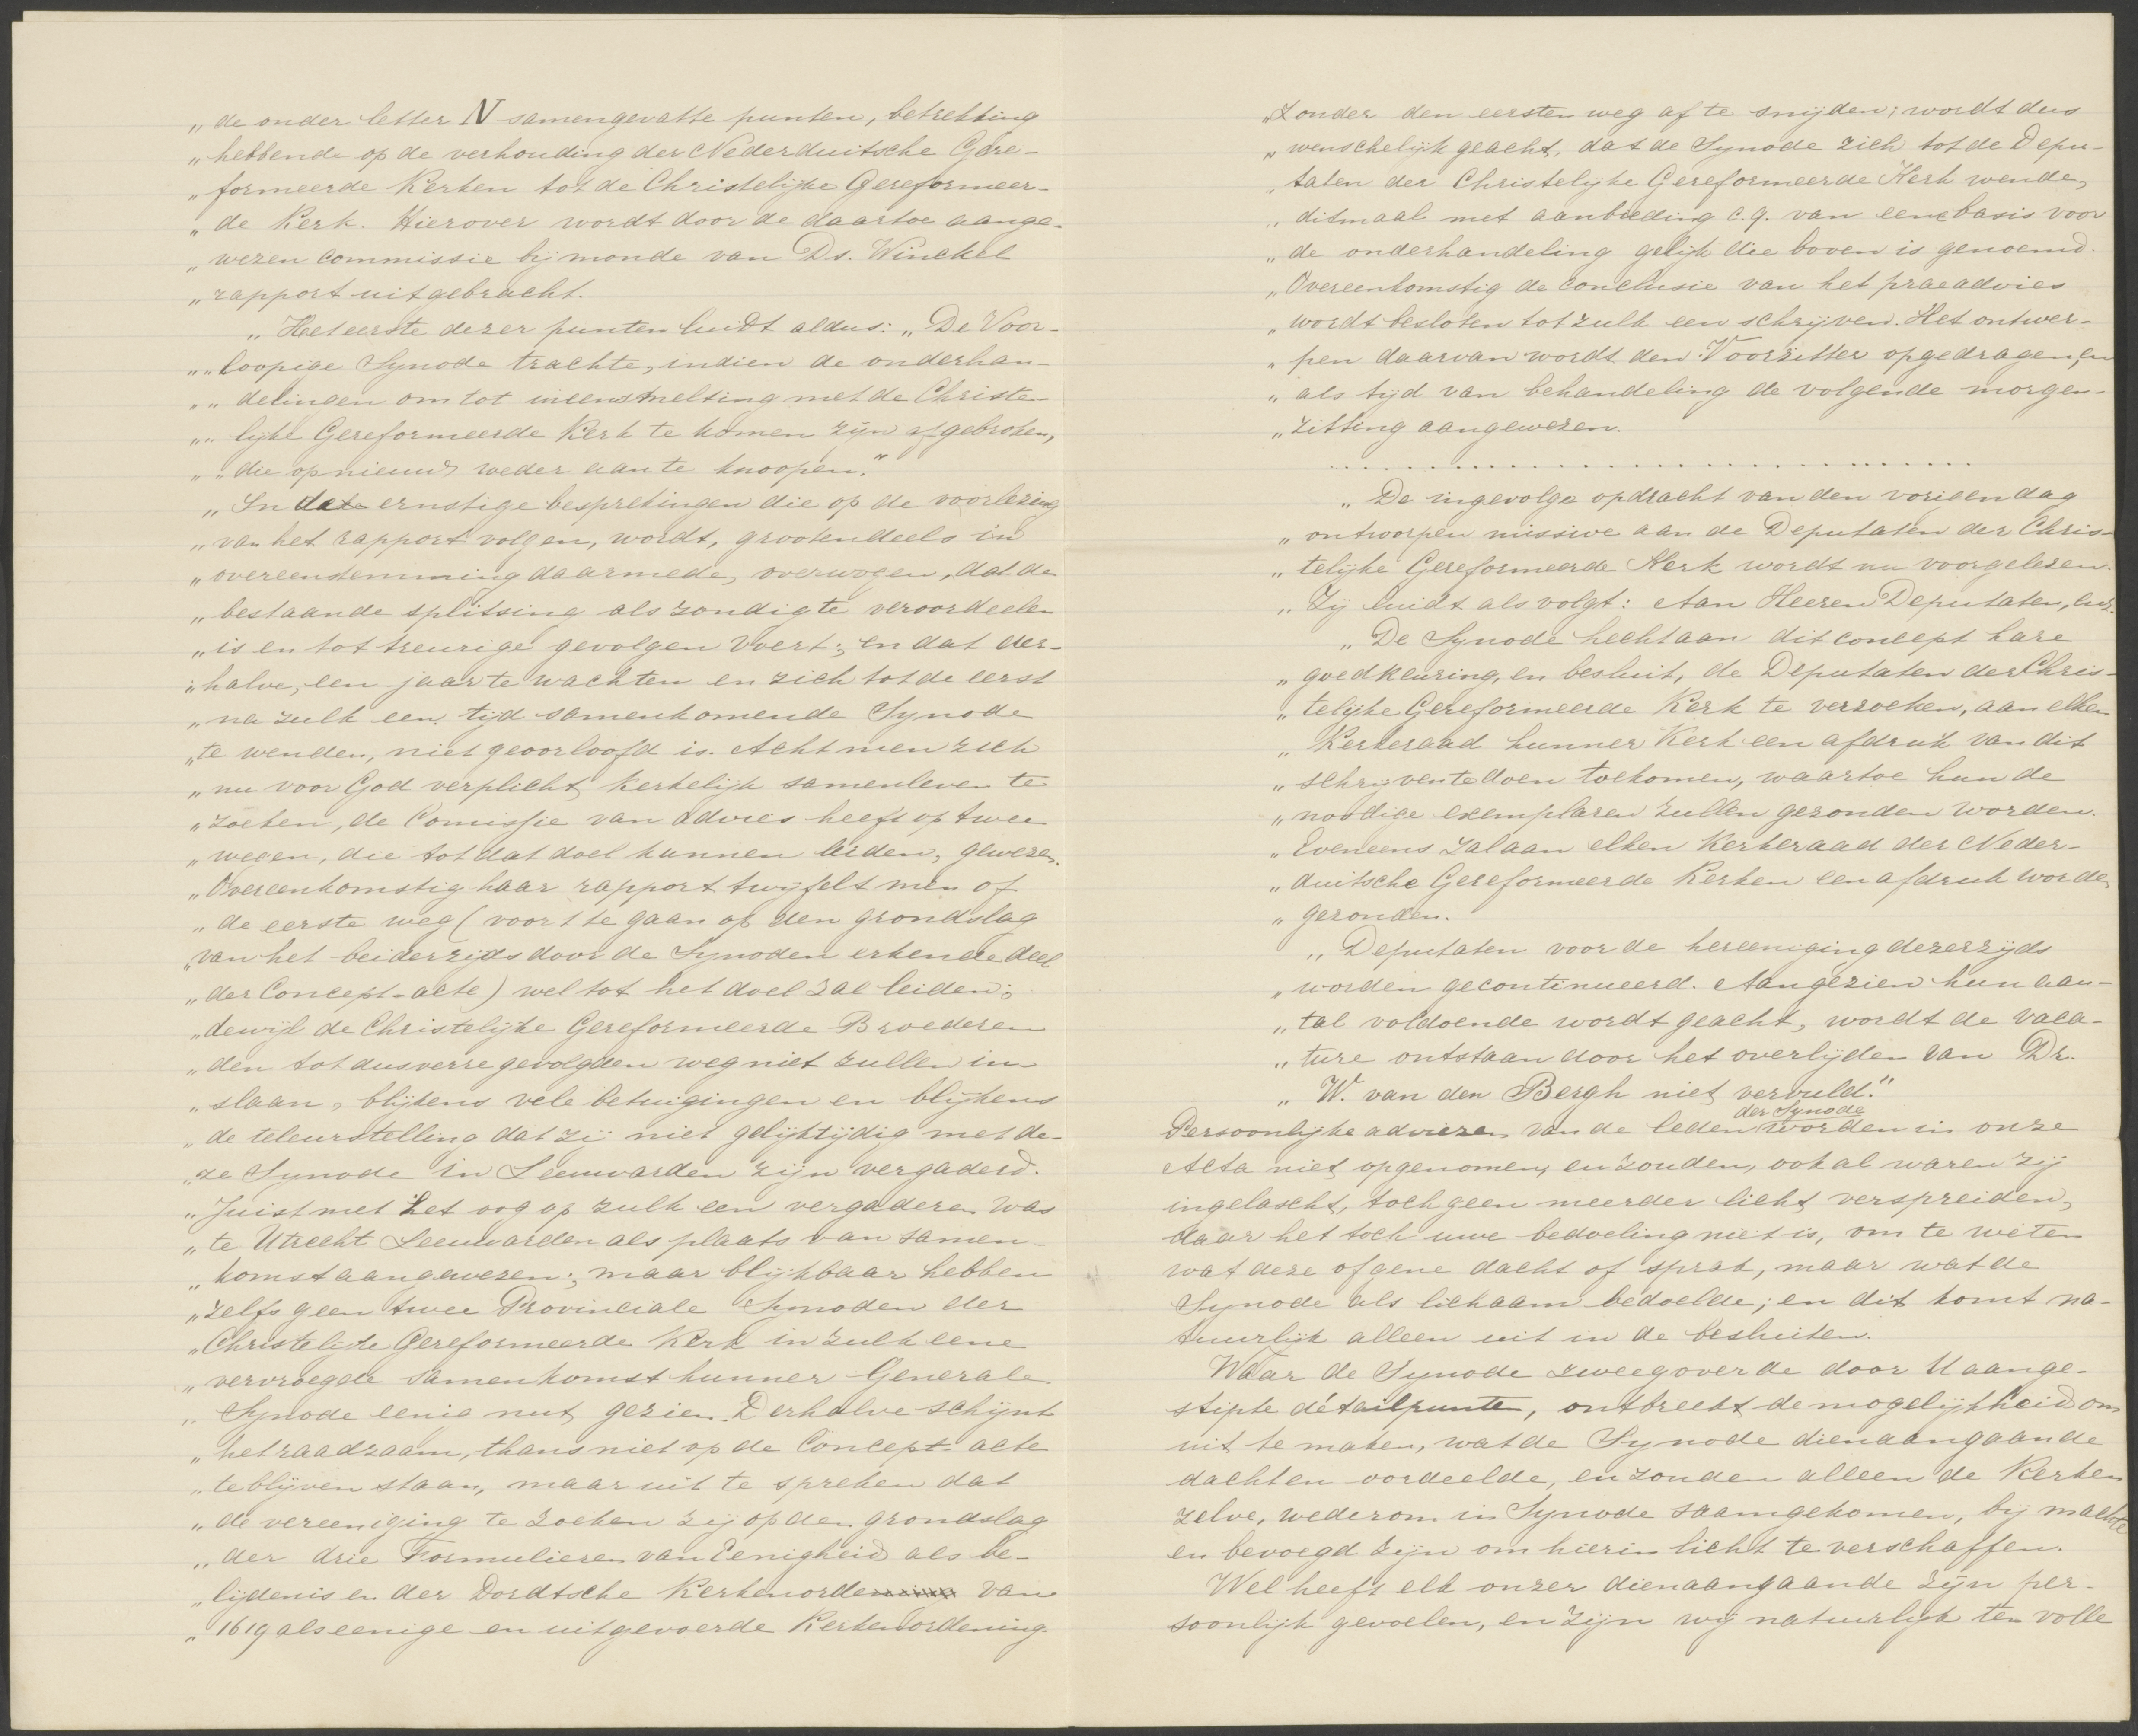 „de onder letter N samengevatte punten, betrekking
„hebbende op de verhouding der Nederduitsche Gere-
„formeerde Kerken tot de Christelijke Gereformeer-
„de Kerk. Hierover wordt door de daartoe aange-
„wezen commissie bij monde van Ds. Winckel
„rapport uitgebracht.
„Het eerste dezer punten luidt aldus: „De Voor-
„„loopige Synode trachte, indien de onderhan-
„„delingen om tot ineensmelting met de Christe-
„„lijke Gereformeerde Kerk te komen zijn afgebroken,
„„die opnieuw weder aan te knoopen."
„In de ernstige besprekingen die op de voorlezing
„van het rapport volgen, wordt, grootendeels in
„overeenstemming daarmede, overwogen, dat de
„bestaande splitsing als zondig te veroordeelen
„is en tot treurige gevolgen voert; en dat der-
„halve, een jaar te wachten en zich tot de eerst
„na zulk een tijd samenkomende Synode
„te wenden, niet geoorloofd is. Acht men zich
„nu voor God verplicht kerkelijk samenleven te
„zoeken, de Comissie van advies heeft op twee
„wegen, die tot dat doel kunnen leiden, gewezen.
„Overeenkomstig haar rapport twijfelt men of
„de eerste weg (voort te gaan op den grondslag
„van het beiderzijds door de Synoden erkende deel
„der Concept-acte) wel tot het doel zal leiden;
„dewijl de Christelijke Gereformeerde Broederen
„den tot dusverre gevolgden weg niet zullen in-
„slaan, blijkens vele betuigingen en blijkens
„de teleurstelling dat zij niet gelijktijdig met de-
„ze Synode in Leeuwarden zijn vergaderd.
„Juist met het oog op zulk een vergaderen was
„te Utrecht Leeuwarden als plaats van samen-
„komst aangewezen; maar blijkbaar hebben
„zelfs geen twee Provinciale Synoden der
„Christelijke Gereformeerde Kerk in zulk eene
„vervroegde samenkomst hunner Generale
„Synode eenig nut gezien. Derhalve schijnt
„het raadzaam, thans niet op de Concept-acte
„te blijven staan, maar uit te spreken dat
„de vereeniging te zoeken zij op den grondslag
„der drie Formulieren van Eenigheid als be-
„lijdenis en der Dordtsche Kerkenorde van
„1619 als eenige en uitgevoerde Kerkenordening.
„Zonder den eersten weg af te snijden; wordt dus
„wenschelijk geacht, dat de Synode zich tot de Depu-
„taten der Christelijke Gereformeerde Kerk wende,
„ditmaal met aanbieding c.q. van eene basis voor
„de onderhandeling gelijk die boven is genoemd.
„Overeenkomstig de conclusie van het praeadvies
„wordt besloten tot zulk een schrijven. Het ontwer-
„pen daarvan wordt den Voorzitter opgedragen, en
„als tijd van behandeling de volgende morgen-
„zitting aangewezen.
. . . . . . . . . . . . . . . . . . . . . . . . . . . . . .
„De ingevolge opdracht van den vorigen dag
„ontworpen missive aan de Deputaten der Chris-
„telijke Gereformeerde Kerk wordt nu voorgelezen.
„Zij luidt als volgt: Aan Heeren Deputaten, enz.
„De Synode hecht aan dit concept hare
„goedkeuring, en besluit, de Deputaten der Chris-
„telijke Gereformeerde Kerk te verzoeken, aan elken
„Kerkeraad hunner Kerk een afdruk van dit
„schrijven te doen toekomen, waartoe hun de
„noodige exemplaren zullen gezonden worden.
„Eveneens zal aan elken Kerkeraad der Neder-
„duitsche Gereformeerde Kerken een afdruk worden
„gezonden.
„Deputaten voor de hereeniging dezerzijds
„worden gecontinueerd. Aangezien hun aan-
„tal voldoende wordt geacht, wordt de vaca-
„ture ontstaan door het overlijden van Dr.
„W. van den Bergh niet vervuld."
Persoonlijke adviezen van de leden der Synode worden in onze
Acta niet opgenomen, en zouden, ook al waren zij
ingelascht, toch geen meerder licht verspreiden,
daar het toch uwe bedoeling niet is, om te weten
wat deze of gene dacht of sprak, maar wat de
Synode als lichaam bedoelde; en dit komt na-
tuurlijk alleen uit in de besluiten.
Waar de Synode zweeg over de door U aange-
stipte détailpunten, ontbreekt de mogelijkheid om
uit te maken, wat de Synode dienaangaande
dacht en oordeelde, en zouden alleen de Kerken
zelve, wederom in Synode saamgekomen, bij machte
en bevoegd zijn om hierin licht te verschaffen.
Wel heeft elk onzer dienaangaande zijn per-
soonlijk gevoelen, en zijn wij natuurlijk ten volle